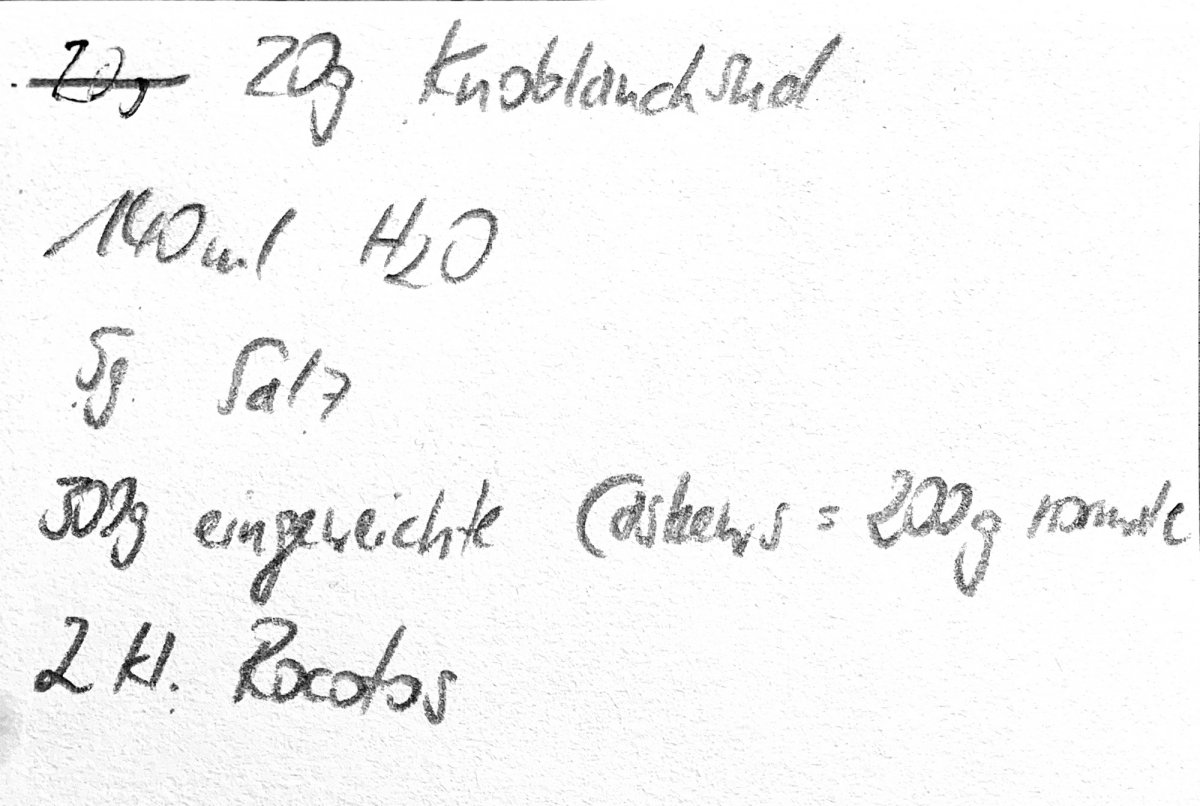 20g 20g Knoblauchsud
140ml H2O
5g Salz
300g eingeweichte Cashews = 200g normale
2 kl. Rocotos